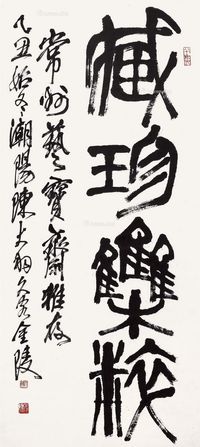 臧珍雧粹
常州藝寶齋雅存
乙丑始冬潮陽陳大羽久客金陵